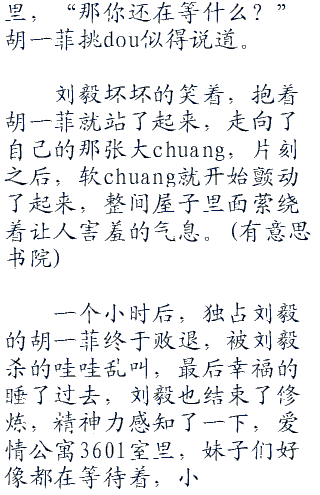 里，“那你还在等什么？”
胡一菲挑dou似得说道。
刘毅坏坏的笑着，抱着
胡一菲就站了起来，走向了
自己的那张大chuang，片刻
之后，软chuang就开始颤动
了起来，整间屋子里面萦绕
着让人害羞的气息。(有意思
书院)
一个小时后，独占刘毅
的胡一菲终于败退，被刘毅
杀的哇哇乱叫，最后幸福的
睡了过去，刘毅也结束了修
炼，精神力感知了一下，爱
情公寓3601室里，妹子们好
像都在等待着，小